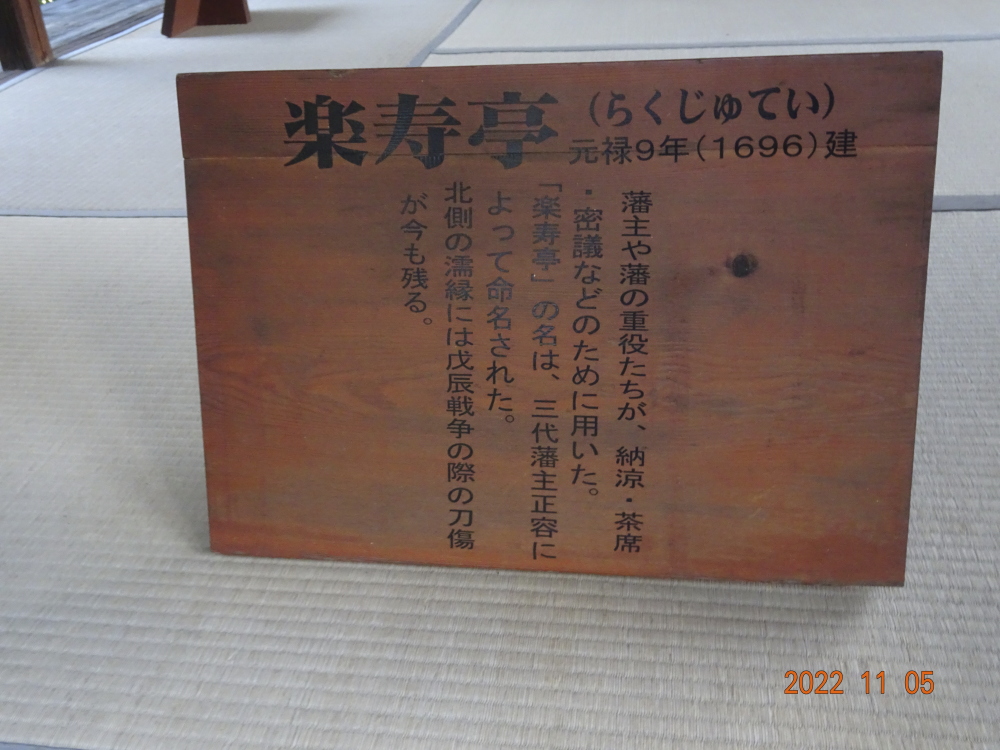 楽寿亭（らくじゅてい）
元禄9年(1696)建
藩主や藩の重役たちが、納涼・茶席
・密議などのために用いた。
「楽寿亭」の名は、三代藩主正容に
よって命名された。
北側の濡縁には戊辰戦争の際の刀傷
が今も残る。
2022 11 05